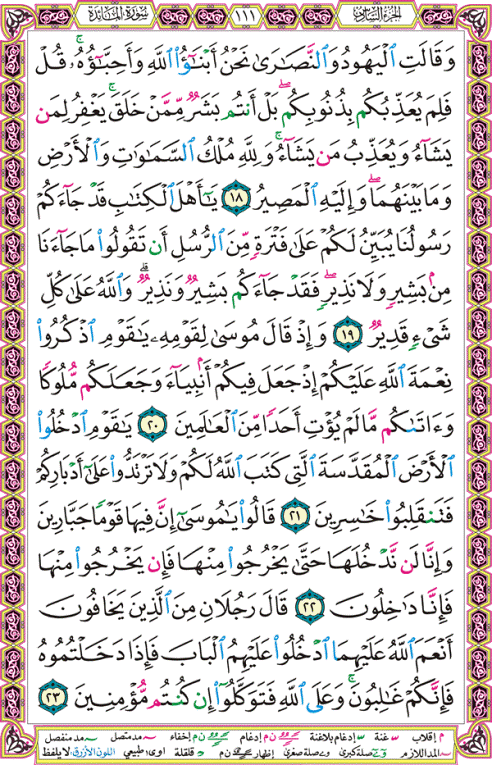 الجزء السادس ١١١ سورة المائدة
وَقَالَتِ الْيَهُودُ وَالنَّصَارَىٰ نَحْنُ أَبْنَاؤُا اللَّهِ وَأَحِبَّاؤُهُ ۚ قُلْ
فَلِمَ يُعَذِّبُكُم بِذُنُوبِكُم ۖ بَلْ أَنتُم بَشَرٌ مِّمَّنْ خَلَقَ ۚ يَغْفِرُ لِمَن
يَشَاءُ وَيُعَذِّبُ مَن يَشَاءُ ۚ وَلِلَّهِ مُلْكُ السَّمَاوَاتِ وَالْأَرْضِ
وَمَا بَيْنَهُمَا ۖ وَإِلَيْهِ الْمَصِيرُ ١٨ يَا أَهْلَ الْكِتَابِ قَدْ جَاءَكُمْ
رَسُولُنَا يُبَيِّنُ لَكُمْ عَلَىٰ فَتْرَةٍ مِّنَ الرُّسُلِ أَن تَقُولُوا مَا جَاءَنَا
مِن بَشِيرٍ وَلَا نَذِيرٍ ۖ فَقَدْ جَاءَكُم بَشِيرٌ وَنَذِيرٌ ۗ وَاللَّهُ عَلَىٰ كُلِّ
شَيْءٍ قَدِيرٌ ١٩ وَإِذْ قَالَ مُوسَىٰ لِقَوْمِهِ يَا قَوْمِ اذْكُرُوا
نِعْمَةَ اللَّهِ عَلَيْكُمْ إِذْ جَعَلَ فِيكُمْ أَنبِيَاءَ وَجَعَلَكُم مُّلُوكًا
وَءَاتَاكُم مَّا لَمْ يُؤْتِ أَحَدًا مِّنَ الْعَالَمِينَ ٢٠ يَا قَوْمِ ادْخُلُوا
الْأَرْضَ الْمُقَدَّسَةَ الَّتِي كَتَبَ اللَّهُ لَكُمْ وَلَا تَرْتَدُّوا عَلَىٰ أَدْبَارِكُمْ
فَتَنقَلِبُوا خَاسِرِينَ ٢١ قَالُوا يَا مُوسَىٰ إِنَّ فِيهَا قَوْمًا جَبَّارِينَ
وَإِنَّا لَن نَّدْخُلَهَا حَتَّىٰ يَخْرُجُوا مِنْهَا فَإِن يَخْرُجُوا مِنْهَا
فَإِنَّا دَاخِلُونَ ٢٢ قَالَ رَجُلَانِ مِنَ الَّذِينَ يَخَافُونَ
أَنْعَمَ اللَّهُ عَلَيْهِمَا ادْخُلُوا عَلَيْهِمُ الْبَابَ فَإِذَا دَخَلْتُمُوهُ
فَإِنَّكُمْ غَالِبُونَ ۚ وَعَلَى اللَّهِ فَتَوَكَّلُوا إِن كُنتُم مُّؤْمِنِينَ ٢٣
م إقلاب س غنة إدغام بلاغنة ن م إدغام ن م إخفاء مد متصل مد منفصل
المد اللازم صلة كبرى وصلة صغرى إظهار قلقلة اوى: طبيعي اللون الأزرق: لا يلفظ